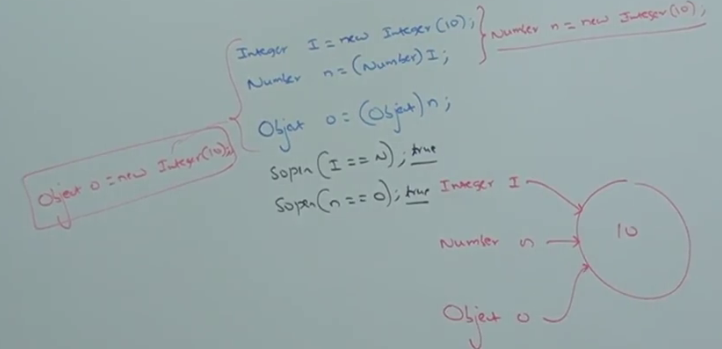 Integer I = new Integer(10);
Number n = (Number)I;
Number n = new Integer(10);
Object o = (Object)n;
Object o = new Integer(10);
Sopln(I == N); true
Sopln(n == o); true
Integer I
Number n
Object o
10